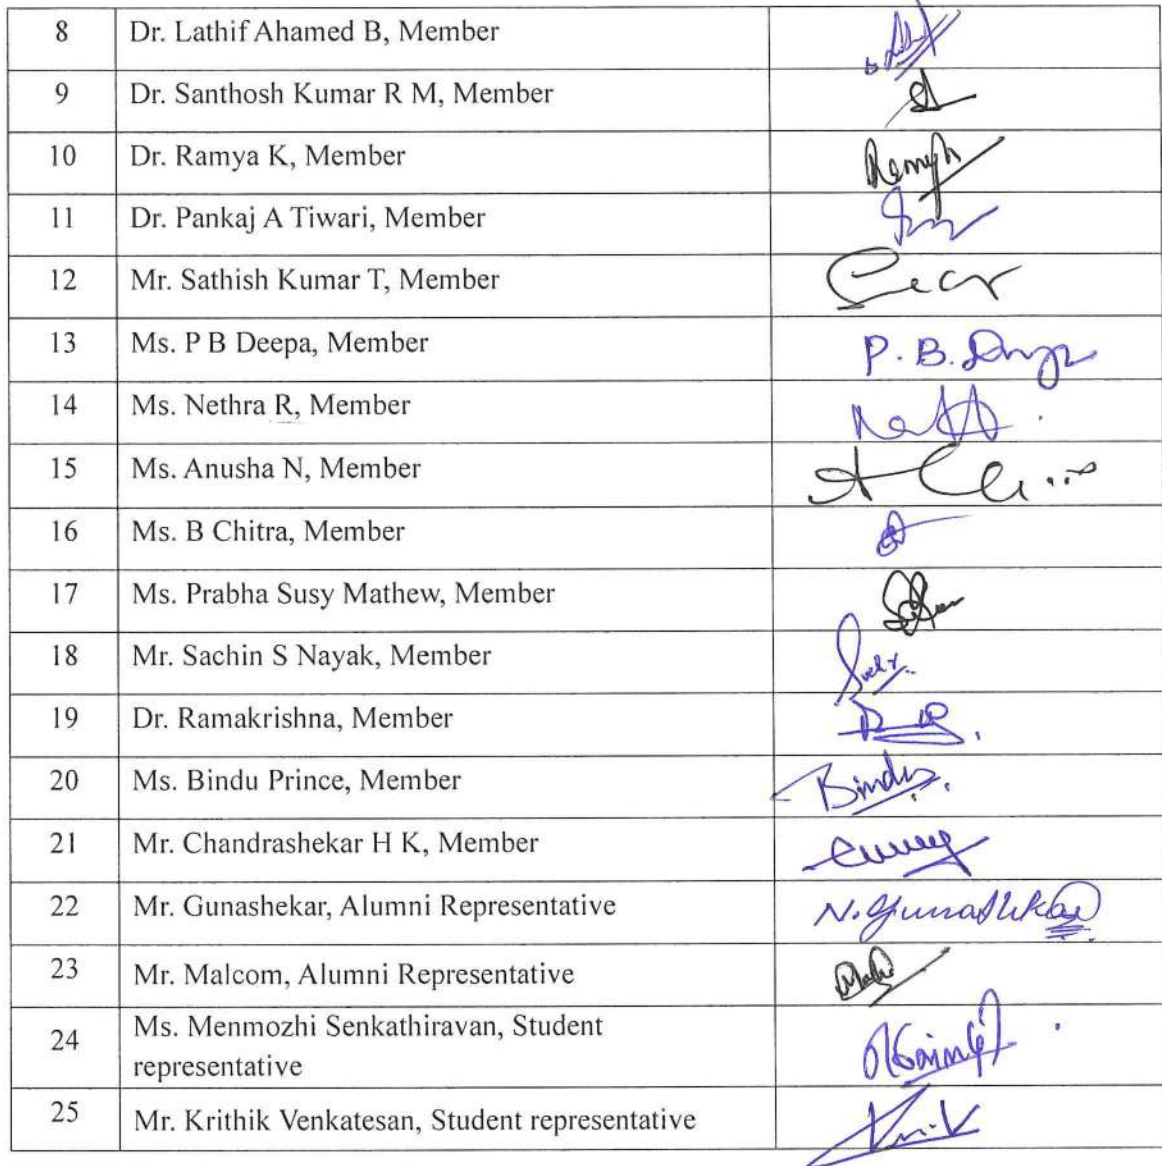 8 Dr. Lathif Ahamed B, Member
9 Dr. Santhosh Kumar R M, Member
10 Dr. Ramya K, Member Ramya
11 Dr. Pankaj A Tiwari, Member
12 Mr. Sathish Kumar T, Member
13 Ms. P B Deepa, Member P. B.
14 Ms. Nethra R, Member
15 Ms. Anusha N, Member
16 Ms. B Chitra, Member
17 Ms. Prabha Susy Mathew, Member
18 Mr. Sachin S Nayak, Member
19 Dr. Ramakrishna, Member
20 Ms. Bindu Prince, Member Bindu
21 Mr. Chandrashekar H K, Member
22 Mr. Gunashekar, Alumni Representative N. Gunashekar
23 Mr. Malcom, Alumni Representative
24 Ms. Menmozhi Senkathiravan, Student
representative
25 Mr. Krithik Venkatesan, Student representative